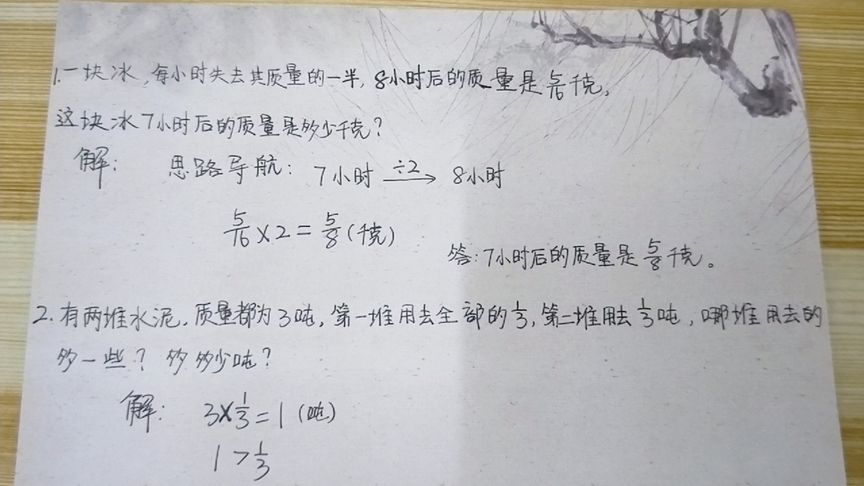 1.一块冰,每小时失去其质量的一半,8小时后的质量是5/16千克,
这块冰7小时后的质量是多少千克?
解: 思路导航: 7小时 ÷2→ 8小时
5/16×2=5/8(千克)
答:7小时后的质量是5/8千克。
2.有两堆水泥,质量都为3吨,第一堆用去全部的1/3,第二堆用去1/3吨,哪堆用去的
多一些?多多少吨?
解: 3×1/3=1(吨)
1>1/3